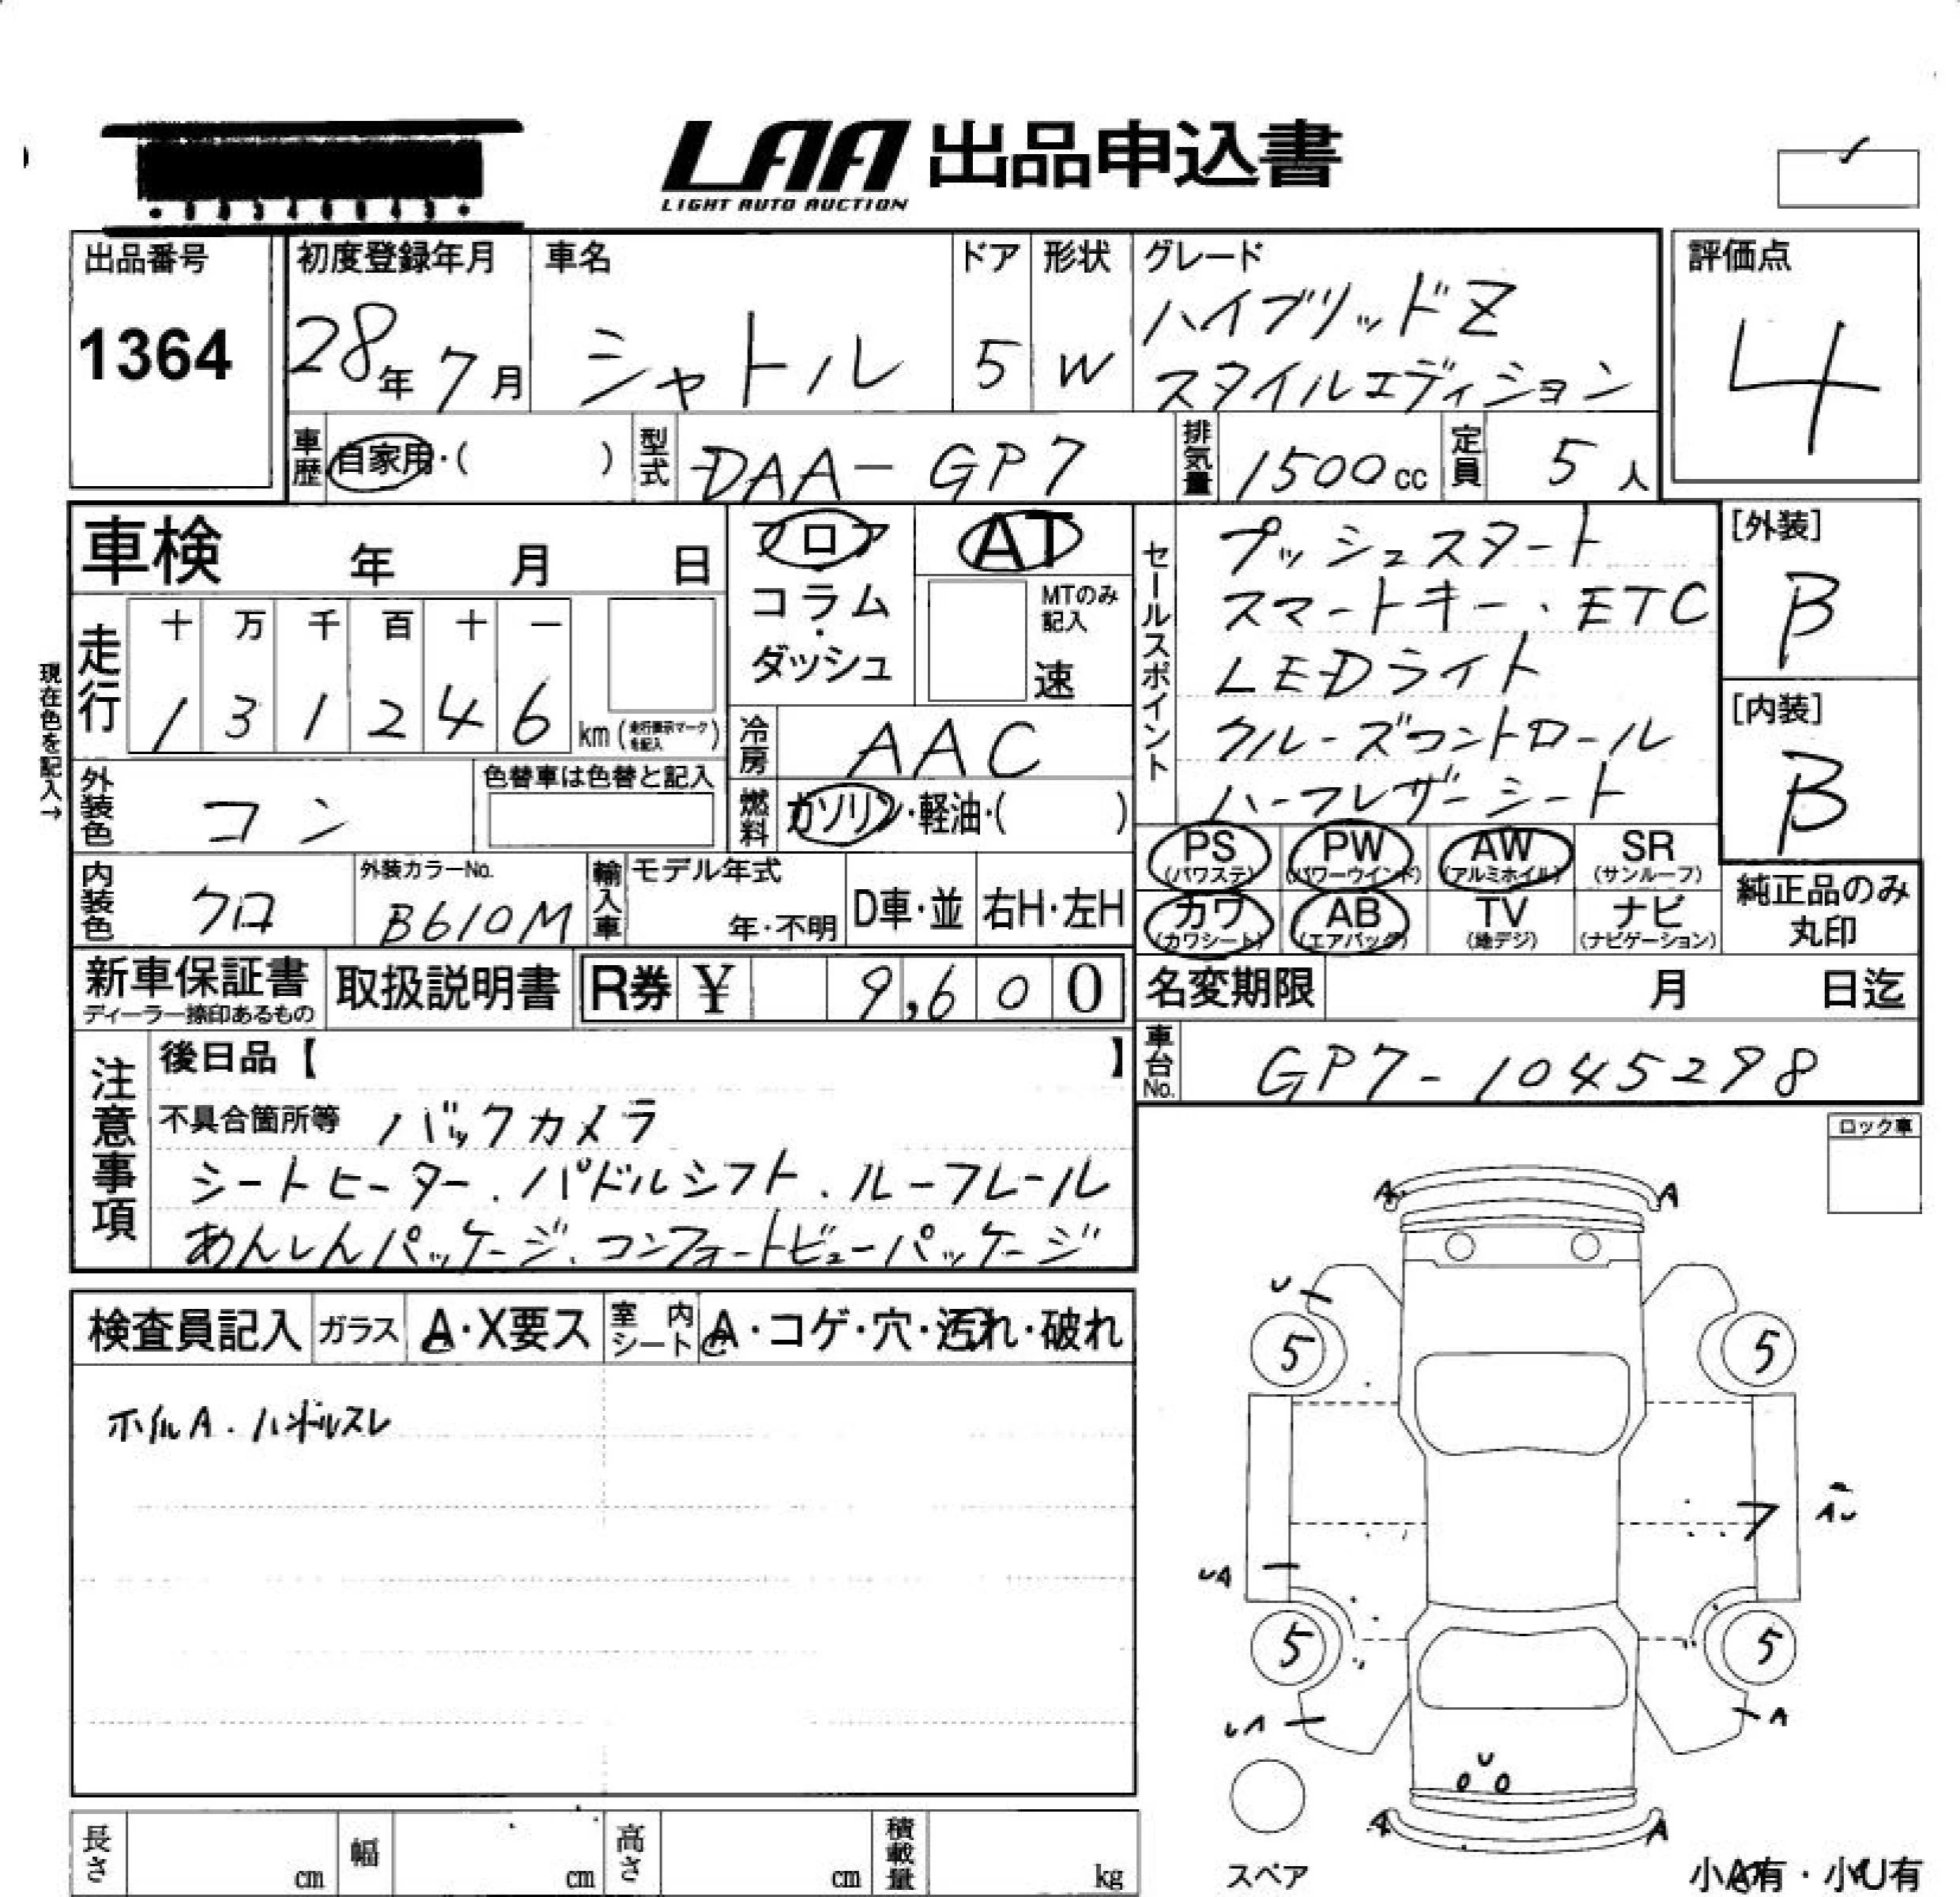 LAA 出品申込書
LIGHT AUTO AUCTION
出品番号 初度登録年月 車名 ドア 形状 グレード 評価点
1364 28年 7月 シャトル 5 W ハイブリッドZ
スタイルエディション
4
車歴 自家用・( ) 型式 DAA-GP7 排気量 1500cc 定員 5人
車検 年 月 日
フロア
コラム
・
ダッシュ
AT
MTのみ
記入
速
セールスポイント
プッシュスタート
スマートキー、ETC
LEDライト
クルーズコントロール
ハーフレザーシート
[外装]
B
[内装]
B
現在色を記入→
走行 十 万 千 百 十 一
1 3 1 2 4 6 km (走行表示マークを記入)
冷房 AAC
外装色 コン 色替車は色替と記入
燃料 ガソリン・軽油・( )
PS PW AW SR
(パワステ) (パワーウインド) (アルミホイル) (サンルーフ)
カワ AB TV ナビ
(カワシート) (エアバッグ) (地デジ) (ナビゲーション)
純正品のみ
丸印
内装色 クロ 外装カラーNo. B610M
輸入車 モデル年式 年・不明 D車・並 右H・左H
新車保証書 取扱説明書 R券 ¥ 9,600
ディーラー捺印あるもの
名変期限 月 日迄
車台No. GP7-1045298
注意事項
後日品【 】
不具合箇所等 バックカメラ
シートヒーター、パドルシフト、ルーフレール
あんしんパッケージ、コンフォートビューパッケージ
ロック車
検査員記入 ガラス A・X要ス 室内シート A・コゲ・穴・汚れ・破れ
ホイルA、ハンドルスレ
A A
U
5 5
AU
UA
5 5
UA A
U
A A
スペア
小A有・小U有
長さ cm 幅 cm 高さ cm 積載量 kg